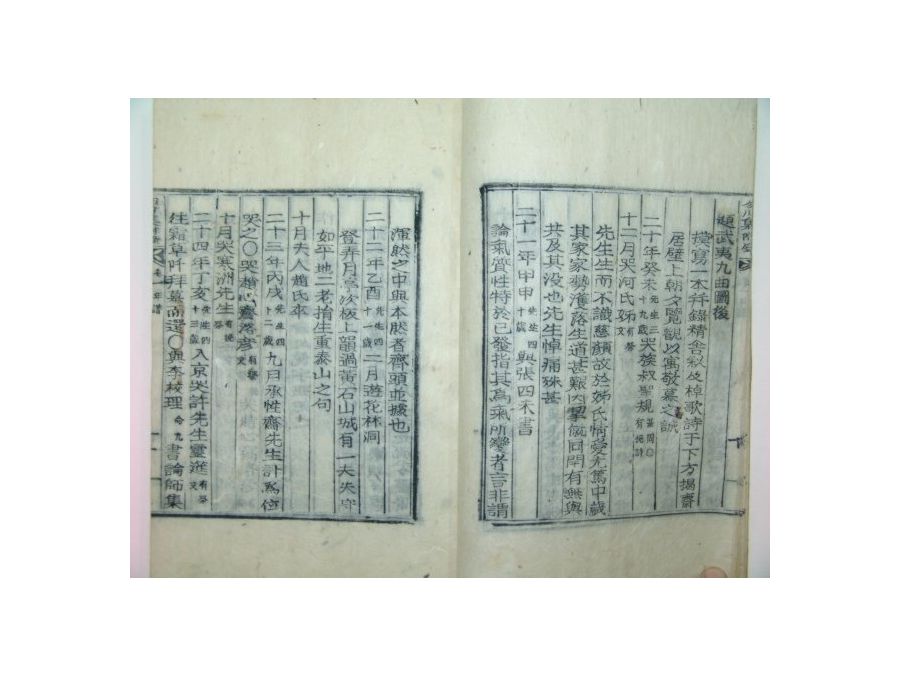 題武夷九曲圖後
摸寫一本幷錄精舍秋及棹歌詩于下方揭齋
居壁上朝夕覽觀以寓敬慕之誠
二十年癸未 先生三十九歲 哭族叔聖規 有挽詩
十二月哭河氏姊 有祭文
先生生而不識慈顏故於姊氏情愛尤篤中歲
其家家勢濩落生道甚艱因挈寓同閈有無與
共及其沒也先生悼痛殊甚
二十一年甲申 先生四十歲 與張四未書
論氣質性特於已發指其爲氣所變者言非謂
渾然之中與本然者齊頭並據也
二十二年乙酉 先生四十一歲 二月遊花林洞
登弄月亭次板上韻過黃石山城有一夫失守
如平地二老捐生重泰山之句
十月夫人趙氏卒
二十三年丙戌 先生四十二歲 九月承性齋先生訃爲位
哭之〇哭趙心齋洛彦 有祭文
十月哭寒洲先生 有挽祭
二十四年丁亥 先生四十三歲 入京哭許先生靈進 有祭文
往霜草阡拜墓而還〇與李校理 命九 書論師集